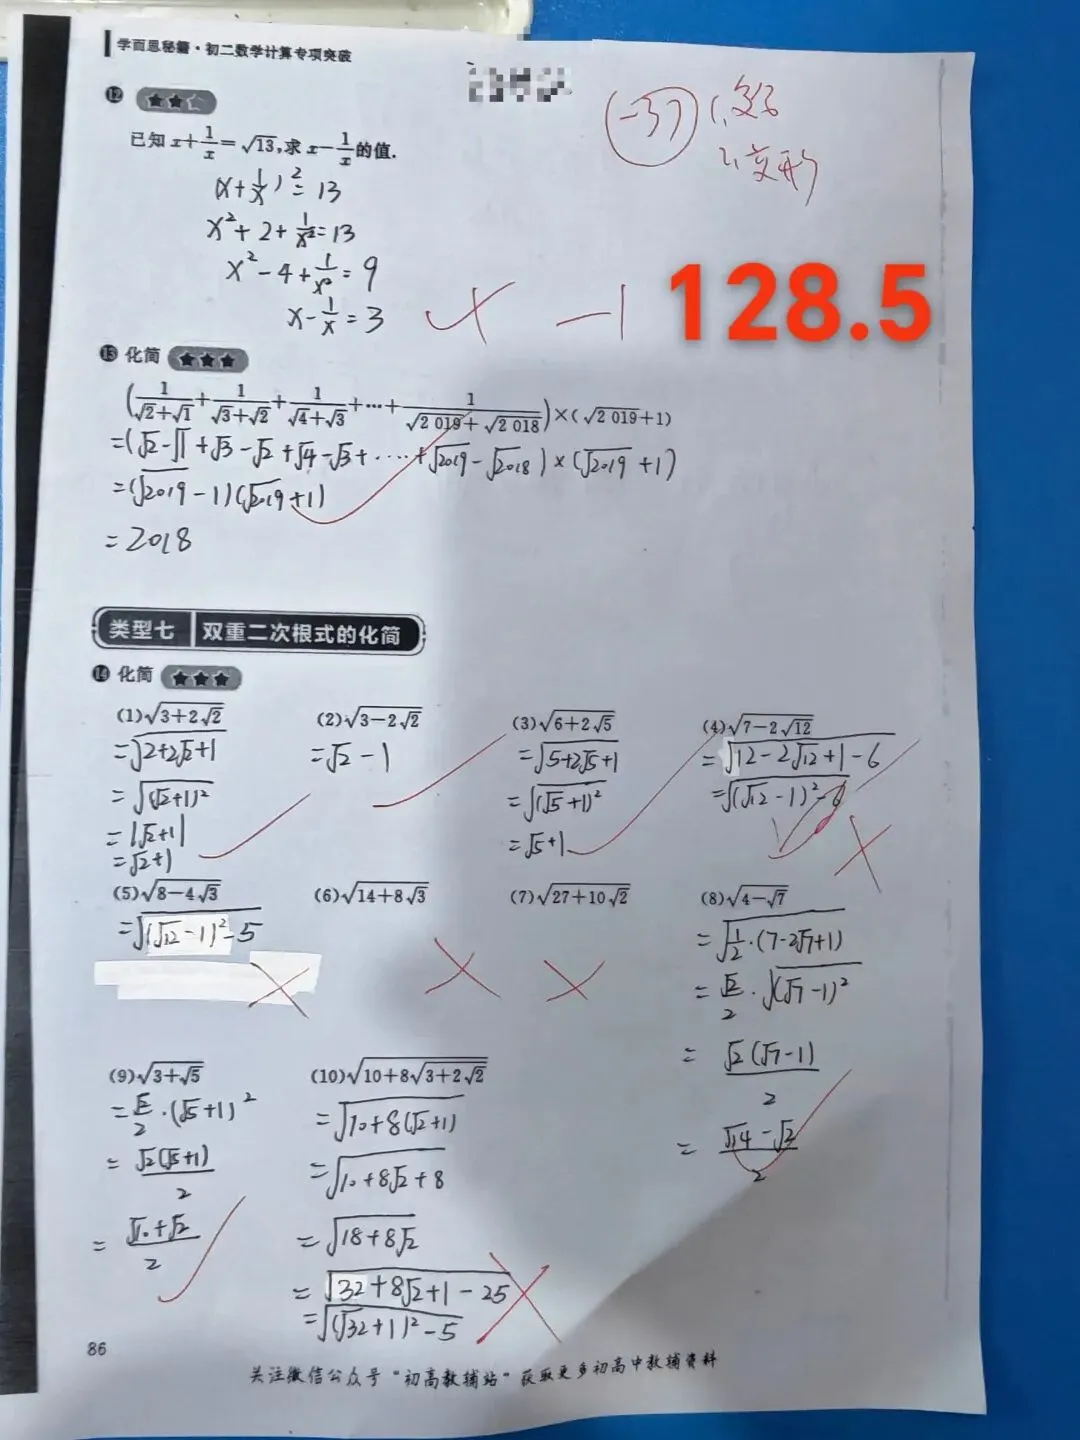 学而思秘籍·初二数学计算专项突破
(-37) 1.
2.变形
⑫ ★★☆
已知 x+1/x=√13,求 x-1/x 的值.
(x+1/x)²=13
x²+2+1/x²=13
x²-4+1/x²=9
x-1/x=3
-1
128.5
⑬ 化简 ★★★
(1/(√2+√1)+1/(√3+√2)+1/(√4+√3)+…+1/(√2 019+√2 018))×(√2 019+1)
=(√2-√1+√3-√2+√4-√3+…+√2019-√2018)×(√2019+1)
=(√2019-1)(√2019+1)
=2018
类型七 双重二次根式的化简
⑭ 化简 ★★★
(1)√(3+2√2)
=√(2+2√2+1)
=√((√2+1)²)
=|√2+1|
=√2+1
(2)√(3-2√2)
=√2-1
(3)√(6+2√5)
=√(5+2√5+1)
=√((√5+1)²)
=√5+1
(4)√(7-2√12)
=√(12-2√12+1-6)
=√((√12-1)²-6)
(5)√(8-4√3)
=√((√12-1)²-5)
(6)√(14+8√3)
(7)√(27+10√2)
(8)√(4-√7)
=√(1/2·(7-2√7+1))
=√2/2·√((√7-1)²)
=√2(√7-1)/2
=(√14-√2)/2
(9)√(3+√5)
=√2/2·(√5+1)²
=√2(√5+1)/2
=(√10+√2)/2
(10)√(10+8√(3+2√2))
=√(10+8(√2+1))
=√(10+8√2+8)
=√(18+8√2)
=√(32+8√2+1-25)
=√((√32+1)²-5)
86
关注微信公众号“初高教辅站”获取更多初高中教辅资料